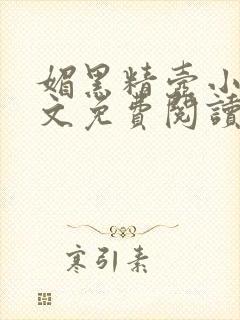 媚黑精壳小
文免費閱讀
寒引素